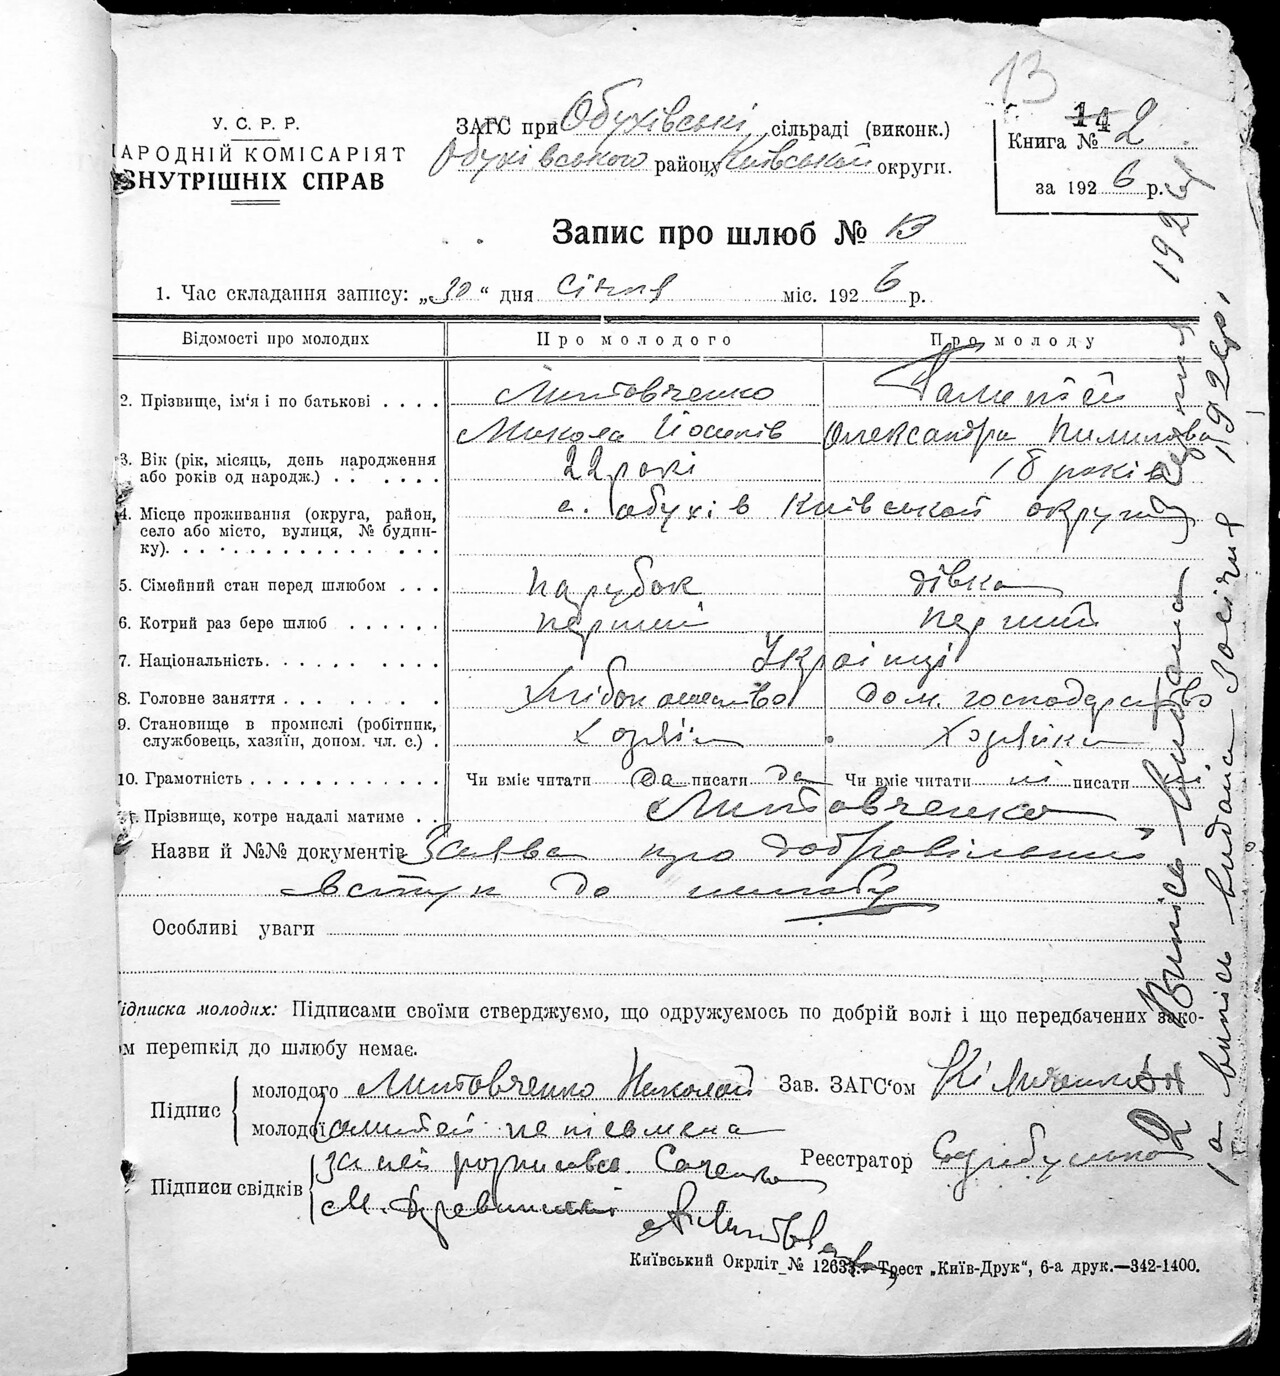 13
У. С. Р. Р.
АРОДНІЙ КОМІСАРІЯТ
ВНУТРІШНІХ СПРАВ
ЗАГС при Обухівські сільраді (виконк.)
Обухівського району Київської округи.
14
Книга № 2
за 1926 р.
Запис про шлюб № 13
1. Час складання запису: „30“ дня січня міс. 1926 р.
Відомості про молодих Про молодого Про молоду
2. Прізвище, ім'я і по батькові . . . . Литовченко
Микола Йосипів Олександра Пилипова
3. Вік (рік, місяць, день народження
або років од народж.) . . . . . . 22 рокі 18 років
4. Місце проживання (округа, район, с. Обухів Київської округи
село або місто, вулиця, № будин-
ку). . . . . . . . . . . . . . .
5. Сімейний стан перед шлюбом . . . парубок дівка
6. Котрий раз бере шлюб . . . . . . перший перший
7. Національність. . . . . . . . . . Українці
8. Головне заняття . . . . . . . . Хлібопашество дом. господарство
9. Становище в промислі (робітник,
службовець, хазяїн, допом. чл. с.) . Хозяїн Хозяйка
10. Грамотність . . . . . . . . . . . Чи вміє читати да писати да Чи вміє читати ні писати ні
Прізвище, котре надалі матиме . . Литовченко
Назви й №№ документів Заява про добровільний
вступ до шлюбу
Особливі уваги
ідписка молодих: Підписами своїми стверджуємо, що одружуємось по добрій волі і що передбачених зако-
м перешкід до шлюбу немає.
Підпис
молодого Литовченко Николай Зав. ЗАГС'ом
молодої неписмена
Підписи свідків за неї розписавсь Реєстратор
М.
Київський Окрліт № 1263 Трест „Київ-Друк“, 6-а друк.—342-1400.
Випись видана 1926
1а випись видана 30 січня 192 р.